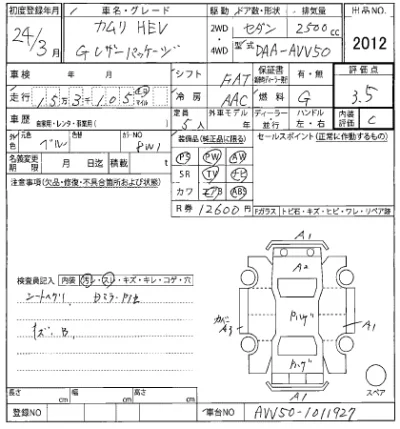 初度登録年月 車名・グレード 駆動 ドア数・形状 排気量 出品No.
24/3月 カムリ HEV 2WD セダン 2500cc 2012
Gレザーパッケージ 4WD 型式 DAA-AVV50
車検 年 月 シフト FAT 保証書 有・無 評価点
走行 15万3千105 km マイル 冷房 AAC 燃料 G 3.5
車歴 定員 5人 外車モデル 年 ディーラー・並行 ハンドル 左・右 内装評価 C
自家用・レンタ・事業用( )
元色 色 カラーNO 8W1 装備品(純正品に限る) セールスポイント(正常に作動するもの)
名義変更期限 月 日迄 積載 t PS PW AW
注意事項(欠品・修復・不具合箇所および状態) SR TV ナビ
カワ エアB ABS
R券 12600円 Fガラス トビ石・キズ・ヒビ・ワレ・リペア跡
A1
A2
検査員記入 内装 汚レ・スレ・キズ・キレ・コゲ・穴
シートヘタリ
A3 A1
キズ、B
A1 スペア
長さ cm 幅 cm 高さ cm
登録NO 車台NO AVV50-1011927